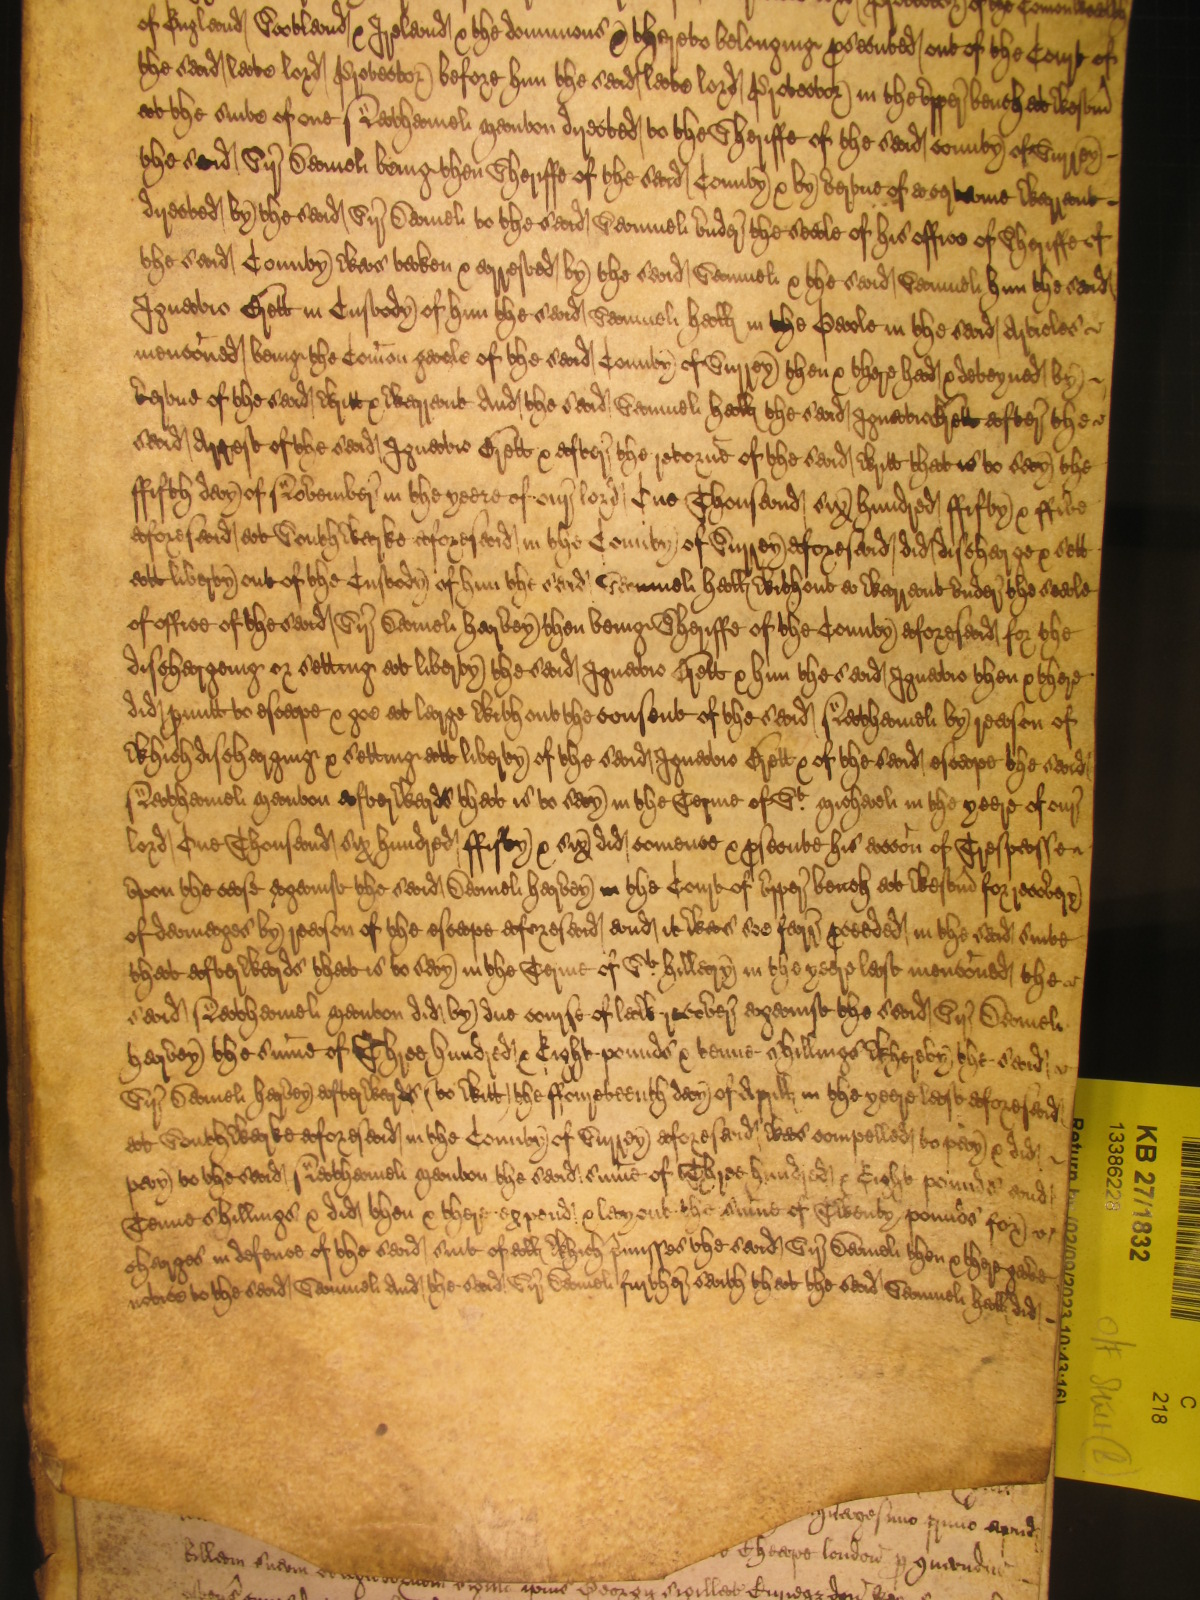 of England Scotland & Ireland & the dominions thereto belonging psecuted out of the Court of
the said late lord Protector before him the said late lord Protector in the upper bench at Westmr
at the suite of one Nathaniell Manton directed to the Sheriffe of the said county of Surrey
the said Sir Samuell being then Sheriffe of the said County & by vertue of a certaine Warrant
directed by the said Sir Samuell to the said Samuell under the seale of his office of Sheriffe of
the said County was taken & arrested by the said Samuell & the said Samuell him the said
Ignatio Grett in Custody of him the said Samuell Hall in the Gaole in the said Articles
menconed being the Comon gaole of the said County of Surrey then & there had & deteyned by
vertue of the said Writt & Warrant And the said Samuell Hall the said Ignatio Grett after the
said Arrest of the said Ignatio Grett & after the retorne of the said Writt that is to say the
ffifth day of November in the yeere of our lord One Thousand six hundred ffifty & ffive
aforesaid at Southwarke aforesaid in the County of Surrey aforesaid did discharge & sett
att liberty out of the Custody of him the said Samuell Hall without a Warrant under the seale
of office of the said Sir Samuell Harvey then being Sheriffe of the County aforesaid for the
dischargeing or setting at liberty the said Ignatio Grett & him the said Ignatio then & there
did pmitt to escape & goe at large without the consent of the said Nathaniell by reason of
which discharging & setting att liberty of the said Ignatio Grett & of the said escape the said
Nathaniell Manton afterwards that is to say in the Terme of St. Michaell in the yeere of our
lord One Thousand six hundred ffifty & six did comence & psecute his accon of Trespasse
upon the case against the said Samuell Harvey in the Court of upper bench at Westmr for recovery
of damages by reason of the escape aforesaid and it was soe farr pceeded in the said suite
that afterwards that is to say in the Terme of St. Hillary in the yeere last menconed the
said Nathaniell Manton did by due course of law recover against the said Sir Samuell
Harvey the sume of Three hundred & Eight pounds & tenne shillings whereby the said
Sir Samuell Harvey afterwards (to witt) the ffourteenth day of Aprill in the yeere last aforesaid
at Southwarke aforesaid in the County of Surrey aforesaid was compelled to pay & did
pay to the said Nathaniell Manton the said sume of Three hundred & Eight pounds and
Tenne shillings & did then & there expend & lay out the sume of Twenty pounds for
charges in defence of the said suit of all which pmisses the said Sir Samuell then & there gave
notice to the said Samuell And the said Sir Samuell further saith that the said Samuell Hall did
KB 27/1832
13386228
C
218
Return by (02/09/2023 10:43:16)
Cheape london